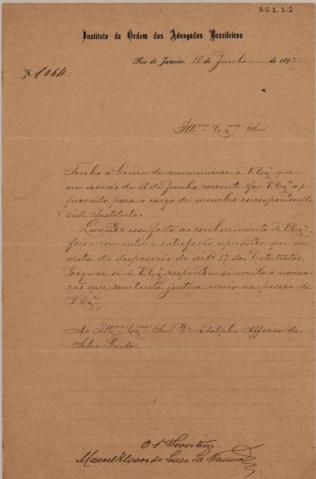 AG 2.2.2
Instituto da Ordem dos Advogados Brasileiros
Rio de Janeiro, 18 de Junho de 189
N. 1064
Illmo. Exmo. Snr.
Tenho a honra de communicar a V. Exa. que
em sessão de 11 de Junho corrente foi V. Exa. ap-
provado para o cargo de membro correspondente
deste Instituto.
Levando esse facto ao conhecimento de V. Exa.
faço-o com inteira satisfação esperando que em
vista da disposição do art. 57 dos Estatutos,
se V. Exa. responder se aceita a nomea-
ção que com tanta justiça recaiu na pessoa de
V. Exa.
Ao Illmo. Exmo. Snr. Dr. Adolpho Affonso da
Silva Gordo.
O 1º Secretario
Manoel Alvaro de Souza Sá Vianna